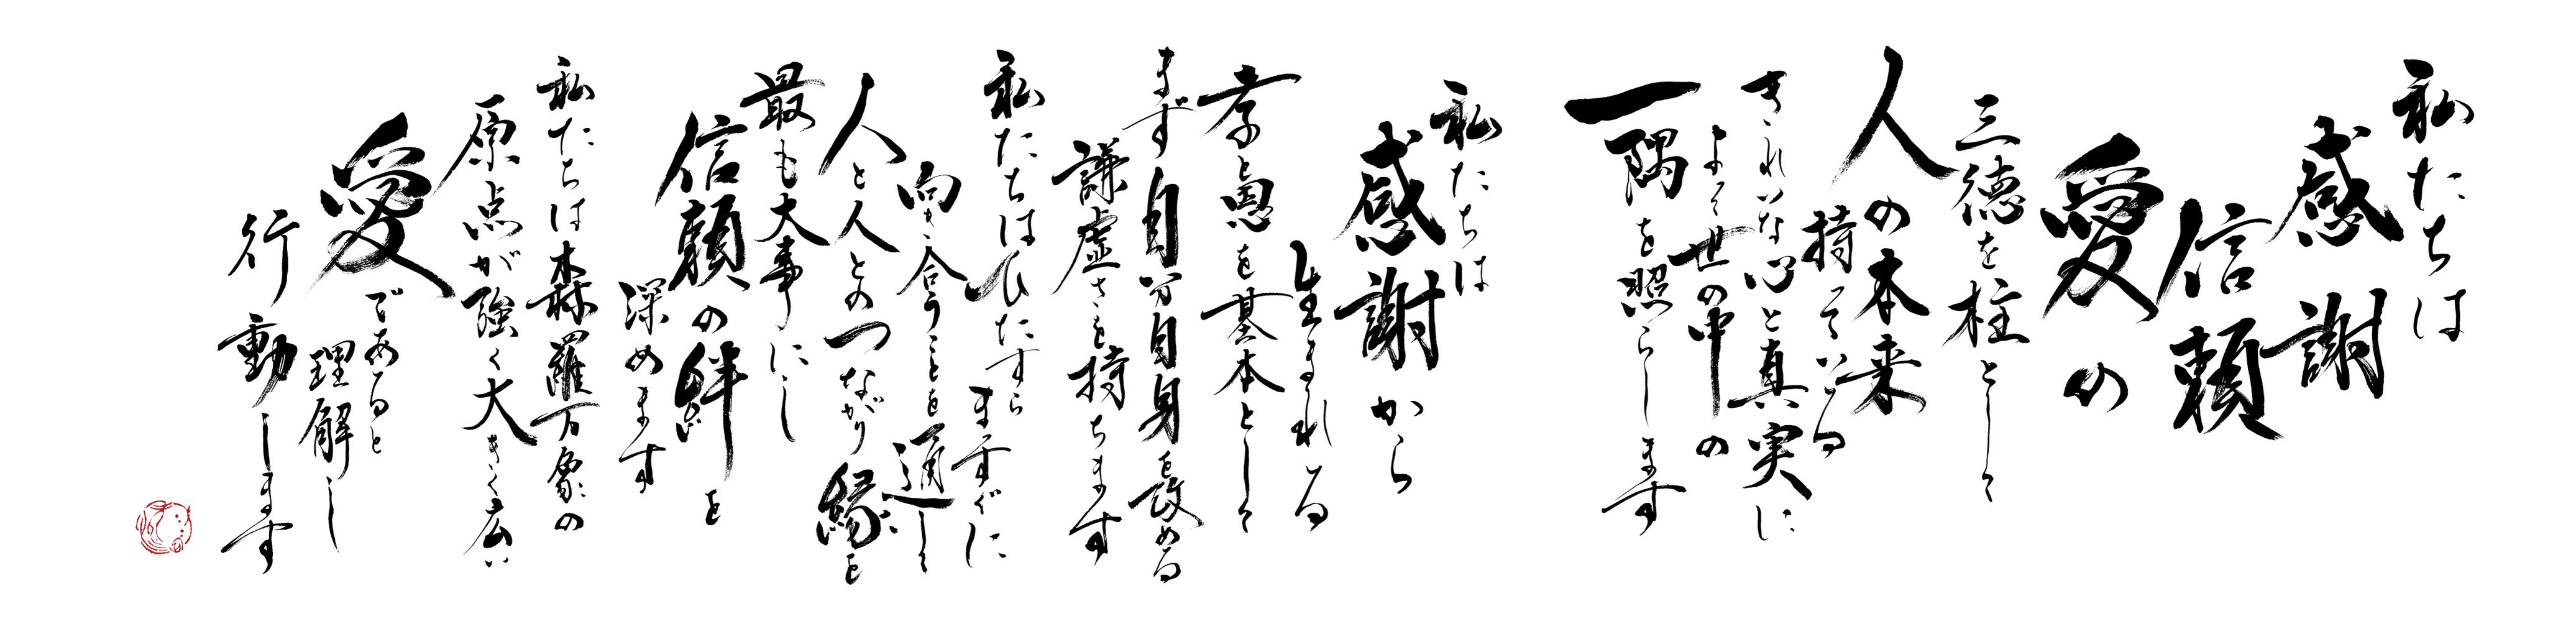 私たちは
感謝
信頼
愛の
三徳を柱として
人の本来
持っている
きれいな心と真実に
よって世の中の
一隅を照らします
私たちは
感謝から
生まれる
孝と恩を基本として
まず自分自身を改める
謙虚さを持ちます
私たちはひたすら
ますぐに
向き合うことを通して
人と人とのつながり縁を
最も大事にし
信頼の絆を
深めます
私たちは森羅万象の
原点が強く大きく広い
愛であると
理解し
行動します